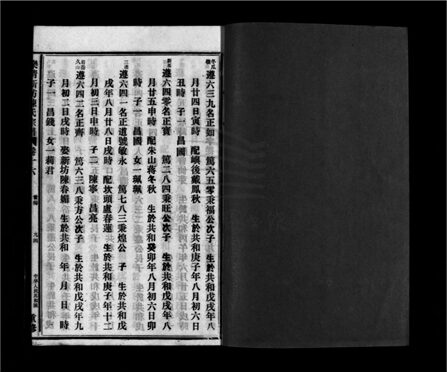 遵六三九名正如 篤六五零秉福公次子 生於共和戊戌年八
月廿四日寅時 配嶼後戴鳳秋 生於共和庚子年八月初六日
丑時 子一 昌國
遵六四零名正寶 篤二八四秉旺公次子 生於共和戊戌年八
月廿五申時 配朱山蔣冬秋 生於共和癸卯年八月初六日卯
時 子一 昌國 女一 珮珮
遵六四一名正道號敏永 篤七八三秉煌公 子 生於共和戊
戌年八月廿八日戌時 配坎頭盧春蓮 生於共和庚子年十二
月初三日申時 子二 陳寧 昌亮
遵六四二名正齊 篤六三八秉方公次子 生於共和戊戌年九
月初二日戌時 娶新坊陳春媚 生於共和 年 月 日 時
子一 昌錢 女一 莉君